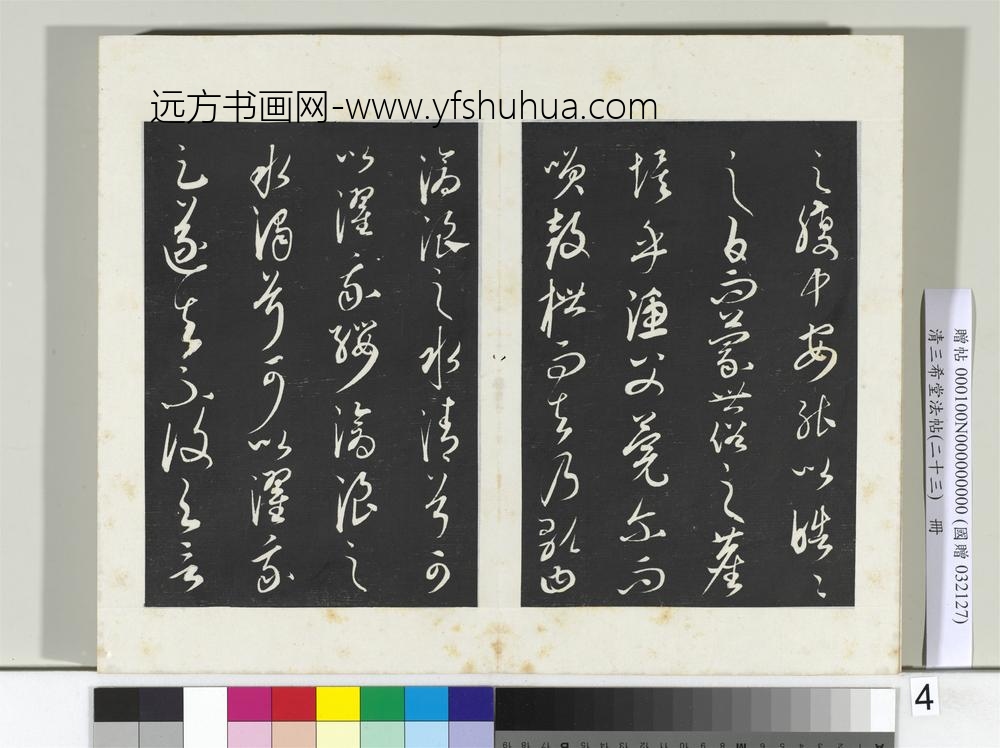 远方书画网-www.yfshuhua.com
之腹中安能以皓々
之白而蒙世俗之塵
埃乎漁父莞尔而
笑鼓枻而去乃歌曰
滄浪之水清兮可
以濯我纓滄浪之
水濁兮可以濯我
足遂去不復与言
贈帖 000100N000000000 (國贈 032127)
清三希堂法帖(二十三) 冊
4